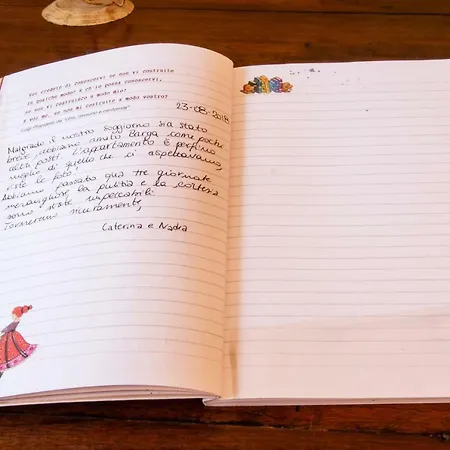 Voi credete di conoscervi se non vi costruite
in qualche modo? E ch'io possa conoscervi,
se non vi costruisco a modo mio?
E voi me, se non mi costruite a modo vostro?
Luigi Pirandello
23-08-2018
Malgrado il nostro soggiorno sia stato
breve, abbiamo amato Barga come poche
altri posti. L'appartamento è perfino
meglio di quello che ci aspettavamo,
viste le foto!
Abbiamo passato qua tre giornate
meravigliose, la pulizia e la cortesia
sono state impeccabili.
Torneremo sicuramente,
Caterina e Nadia